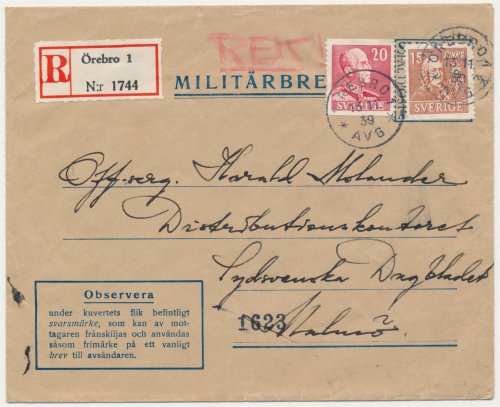 R
Örebro 1
N:r 1744
RETUR
MILITÄRBRE
20
SVERIGE
15
SVERIGE
ÖREBRO 1
13.11.
39
* AVG *
Off.serg. Harald Molander
Distributionskontoret
Sydsvenska Dagbladet
1623
Malmö.
Observera
under kuvertets flik befintligt
svarsmärke, som kan av mot-
tagaren frånskiljas och användas
såsom frimärke på ett vanligt
brev till avsändaren.